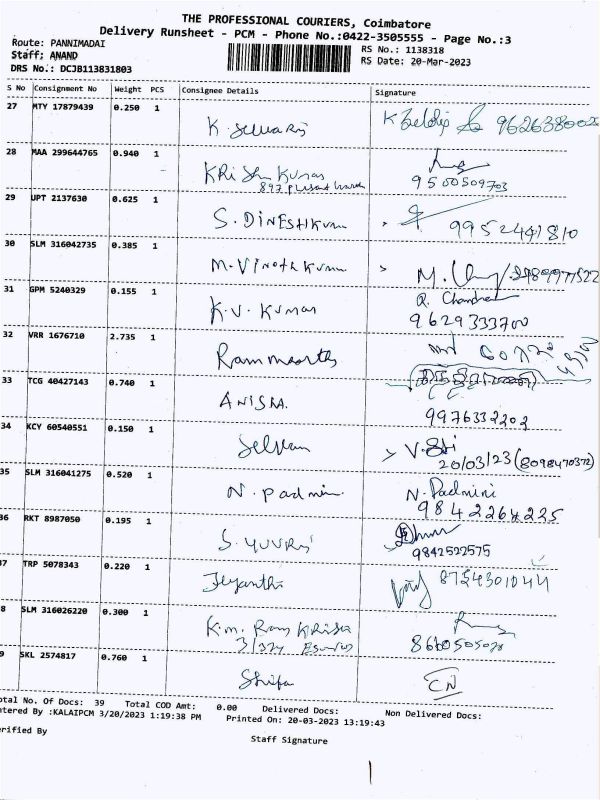 THE PROFESSIONAL COURIERS, Coimbatore
Delivery Runsheet - PCM - Phone No.:0422-3505555 - Page No.:3
Route: PANNIMADAI
RS No.: 1138318
Staff: ANAND
RS Date: 20-Mar-2023
DRS No.: DCJB113831803
S No Consignment No Weight PCS Consignee Details Signature
27 MTY 17879439 0.250 1
K Selvaraj
28 MAA 299644765 0.940 1
Krishn Kumar
9500509703
29 UPT 2137630 0.625 1
S. DINESHKumar 9952441810
30 SLM 316042735 0.385 1
M. Vinoth Kumar
31 GPM 5240329 0.155 1 R. Chandran
K.V. Kumar 9629333700
32 VRR 1676710 2.735 1
Rammoorthy
33 TCG 40427143 0.740 1
ANISHA. 9976332202
34 KCY 60540551 0.150 1
Selvam
20/03/23 (8098470372)
35 SLM 316041275 0.520 1
N. Padmini N. Padmini
9842264225
36 RKT 8987050 0.195 1
S. YUVRaj 9842522575
7 TRP 5078343 0.220 1
Jeyanthi 8754301044
8 SLM 316026220 0.300 1
K.M. Ram Krish
9 SKL 2574817 0.760 1
CN
otal No. Of Docs: 39 Total COD Amt: 0.00 Delivered Docs: Non Delivered Docs:
ntered By :KALAIPCM 3/20/2023 1:19:38 PM Printed On: 20-03-2023 13:19:43
erified By
Staff Signature